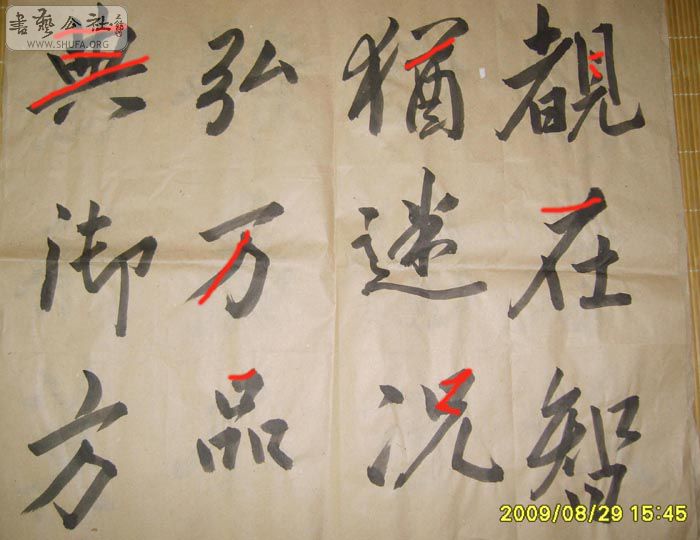 覩在智
猶迷况
弘万品
典御方
書藝公社
WWW.SHUFA.ORG
2009/08/29 15:45